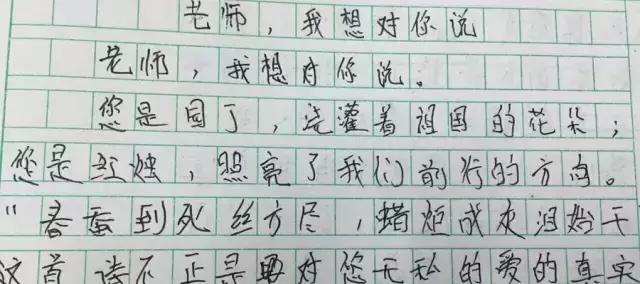 老师，我想对你说
老师，我想对你说。
您是园丁，浇灌着祖国的花朵；
您是红烛，照亮了我们前行的方向。
"春蚕到死丝方尽，蜡炬成灰泪始干
这首诗不正是对您无私的爱的真实